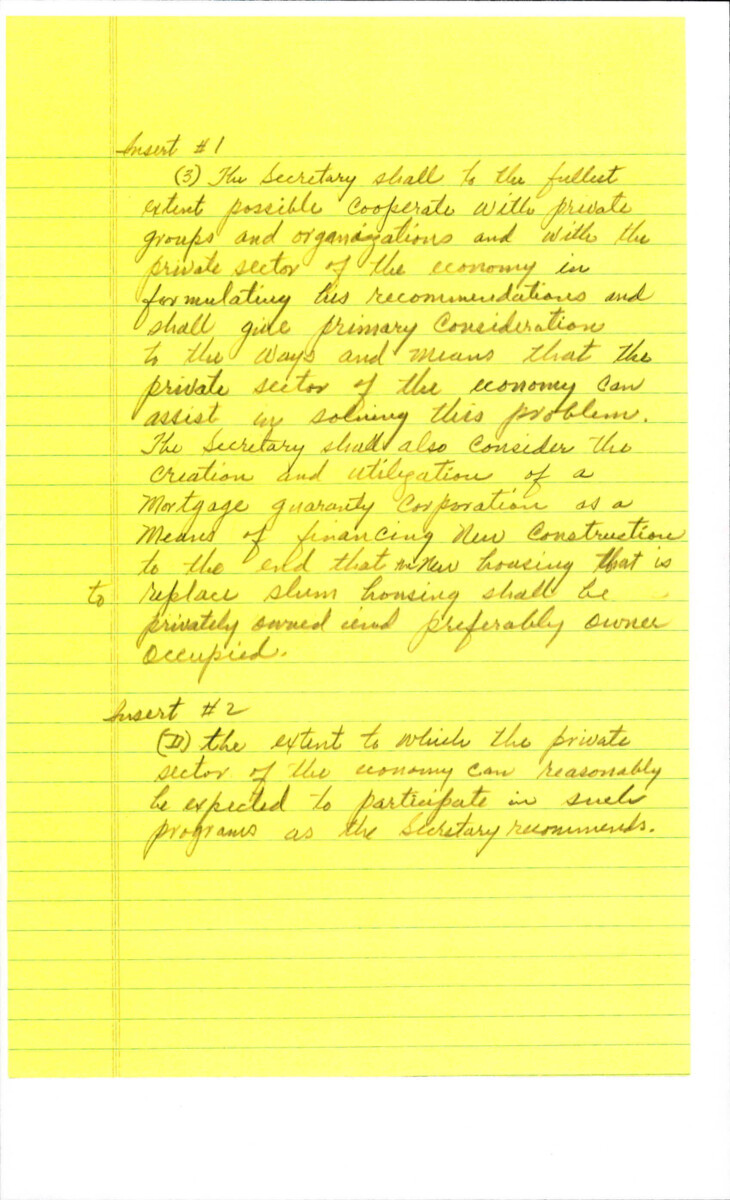 Insert #1
(3) The Secretary shall to the fullest
extent possible cooperate with private
groups and organizations and with the
private sector of the economy in
formulating his recommendations and
shall give primary consideration
to the ways and means that the
private sector of the economy can
assist in solving this problem.
The Secretary shall also consider the
creation and utilization of a
Mortgage guaranty Corporation as a
Means of financing New Construction
to the end that new housing that is
to replace slum housing shall be
privately owned and preferably owner
occupied.
Insert #2
(D) the extent to which the private
sector of the economy can reasonably
be expected to participate in such
programs as the Secretary recommends.